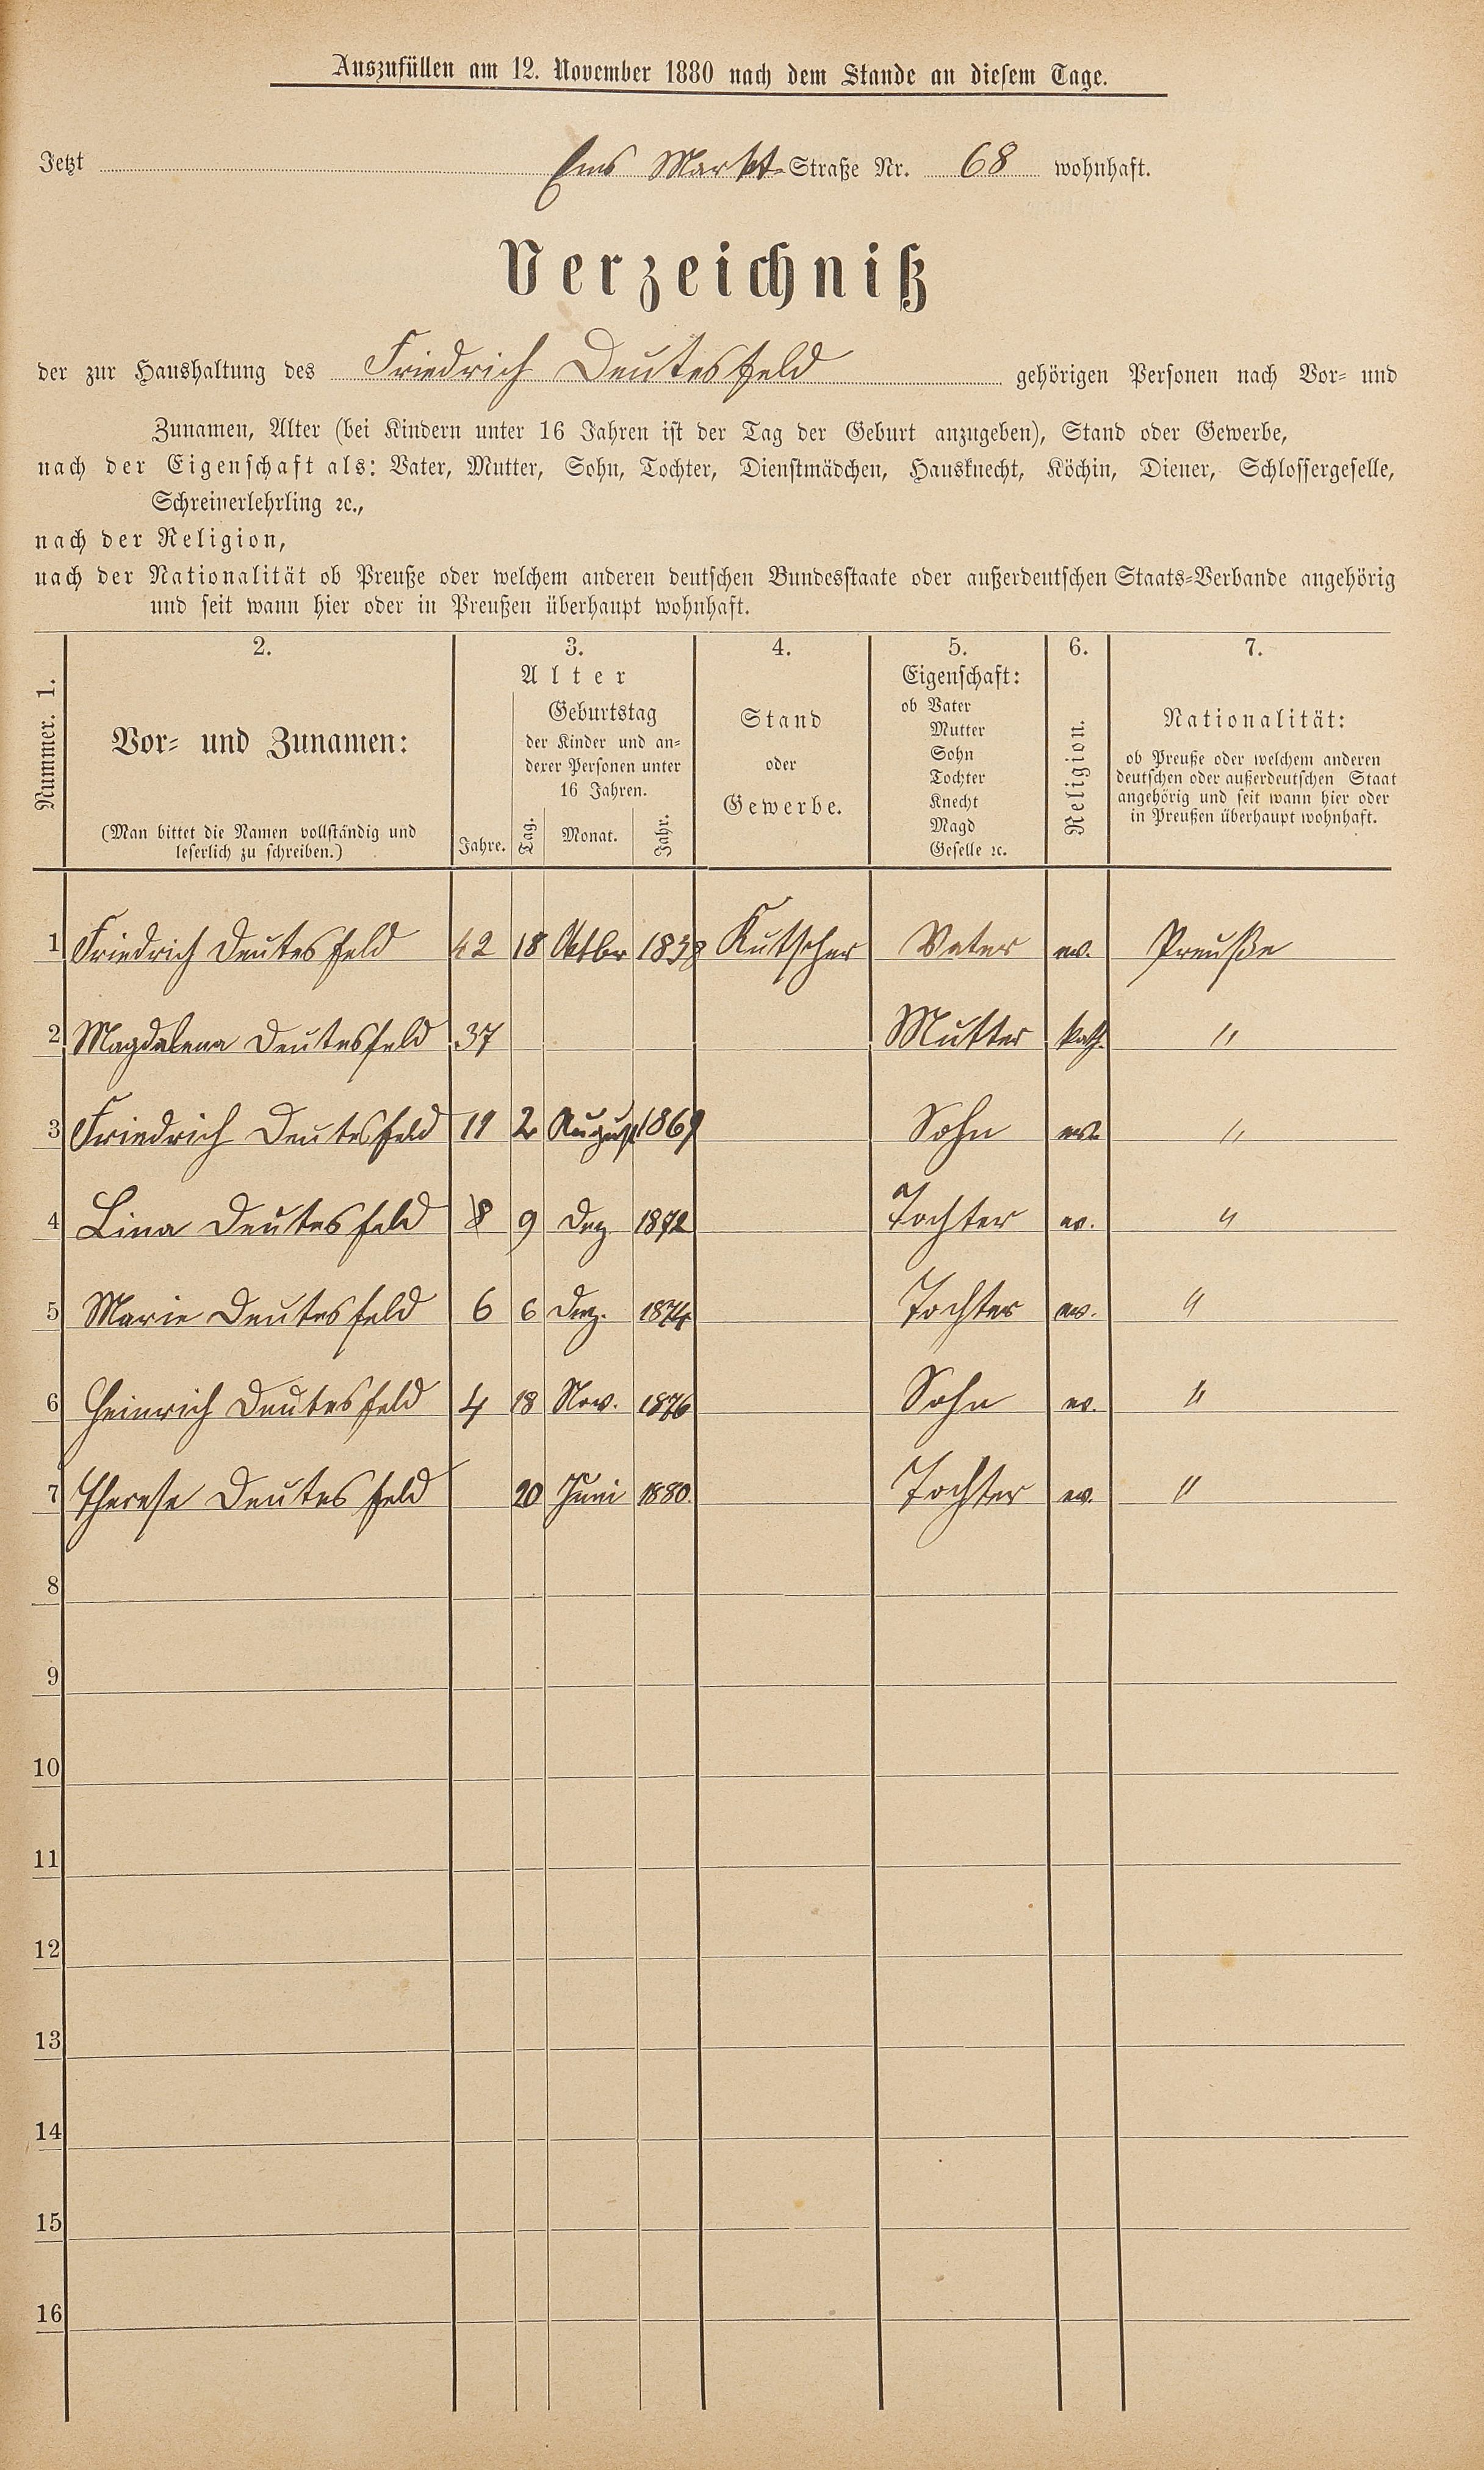 Auszufüllen am 12. November 1880 nach dem Stande an diesem Tage.
Jetzt Ems Markt-Straße Nr. 68 wohnhaft.
Verzeichniß
der zur Haushaltung des Friedrich Deutesfeld gehörigen Personen nach Vor- und
Zunamen, Alter (bei Kindern unter 16 Jahren ist der Tag der Geburt anzugeben), Stand oder Gewerbe,
nach der Eigenschaft als: Vater, Mutter, Sohn, Tochter, Dienstmädchen, Hausknecht, Köchin, Diener, Schlossergeselle,
Schreinerlehrling ꝛc.,
nach der Religion,
nach der Nationalität ob Preuße oder welchem anderen deutschen Bundesstaate oder außerdeutschen Staats-Verbande angehörig
und seit wann hier oder in Preußen überhaupt wohnhaft.
Nummer. 1.
2.
Vor- und Zunamen:
(Man bittet die Namen vollständig und
leserlich zu schreiben.)
3.
Alter
Jahre.
Geburtstag
der Kinder und an-
derer Personen unter
16 Jahren.
Tag. Monat. Jahr.
4.
Stand
oder
Gewerbe.
5.
Eigenschaft:
ob Vater
Mutter
Sohn
Tochter
Knecht
Magd
Geselle ꝛc.
6.
Religion.
7.
Nationalität:
ob Preuße oder welchem anderen
deutschen oder außerdeutschen Staat
angehörig und seit wann hier oder
in Preußen überhaupt wohnhaft.
1 Friedrich Deutesfeld 42 18 Oktbr 1838 Kutscher Vater ev. Preuße
2 Magdalena Deutesfeld 37 Mutter kath. "
3 Friedrich Deutesfeld 11 2 August 1869 Sohn ev. "
4 Lina Deutesfeld 8 9 Dez 1872 Tochter ev. "
5 Marie Deutesfeld 6 6 Dez. 1874 Tochter ev. "
6 Heinrich Deutesfeld 4 18 Nov. 1876 Sohn ev. "
7 Therese Deutesfeld 20 Juni 1880. Tochter ev. "
8
9
10
11
12
13
14
15
16